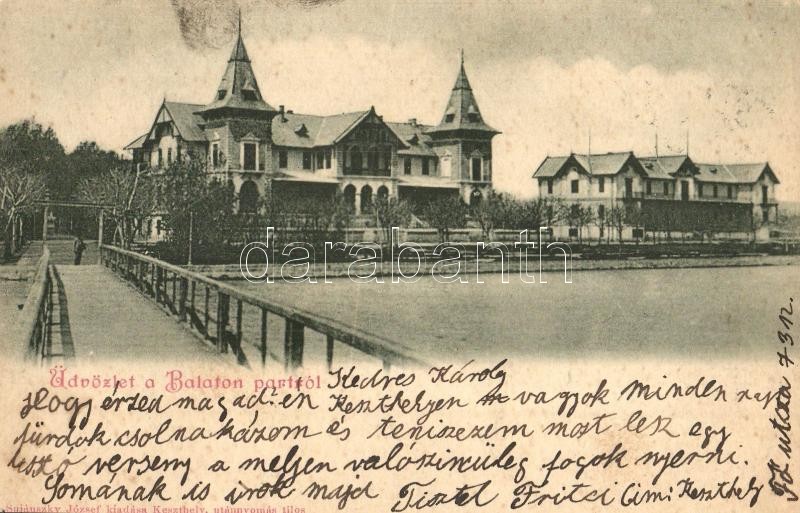 darabanth
Üdvözlet a Balaton partról Kedves Károly
Hogy érzed magad? én Keszthelyen vagyok minden nap
fürdők csolnakázom és teniszezem most lesz egy
verseny a melyen valószinüleg fogok nyerni.
Somának is irok majd Tisztel Fritzi Cim: Keszthely
Fő utcza 7312.
Sujánszky József kiadása Keszthely, utánnyomás tilos